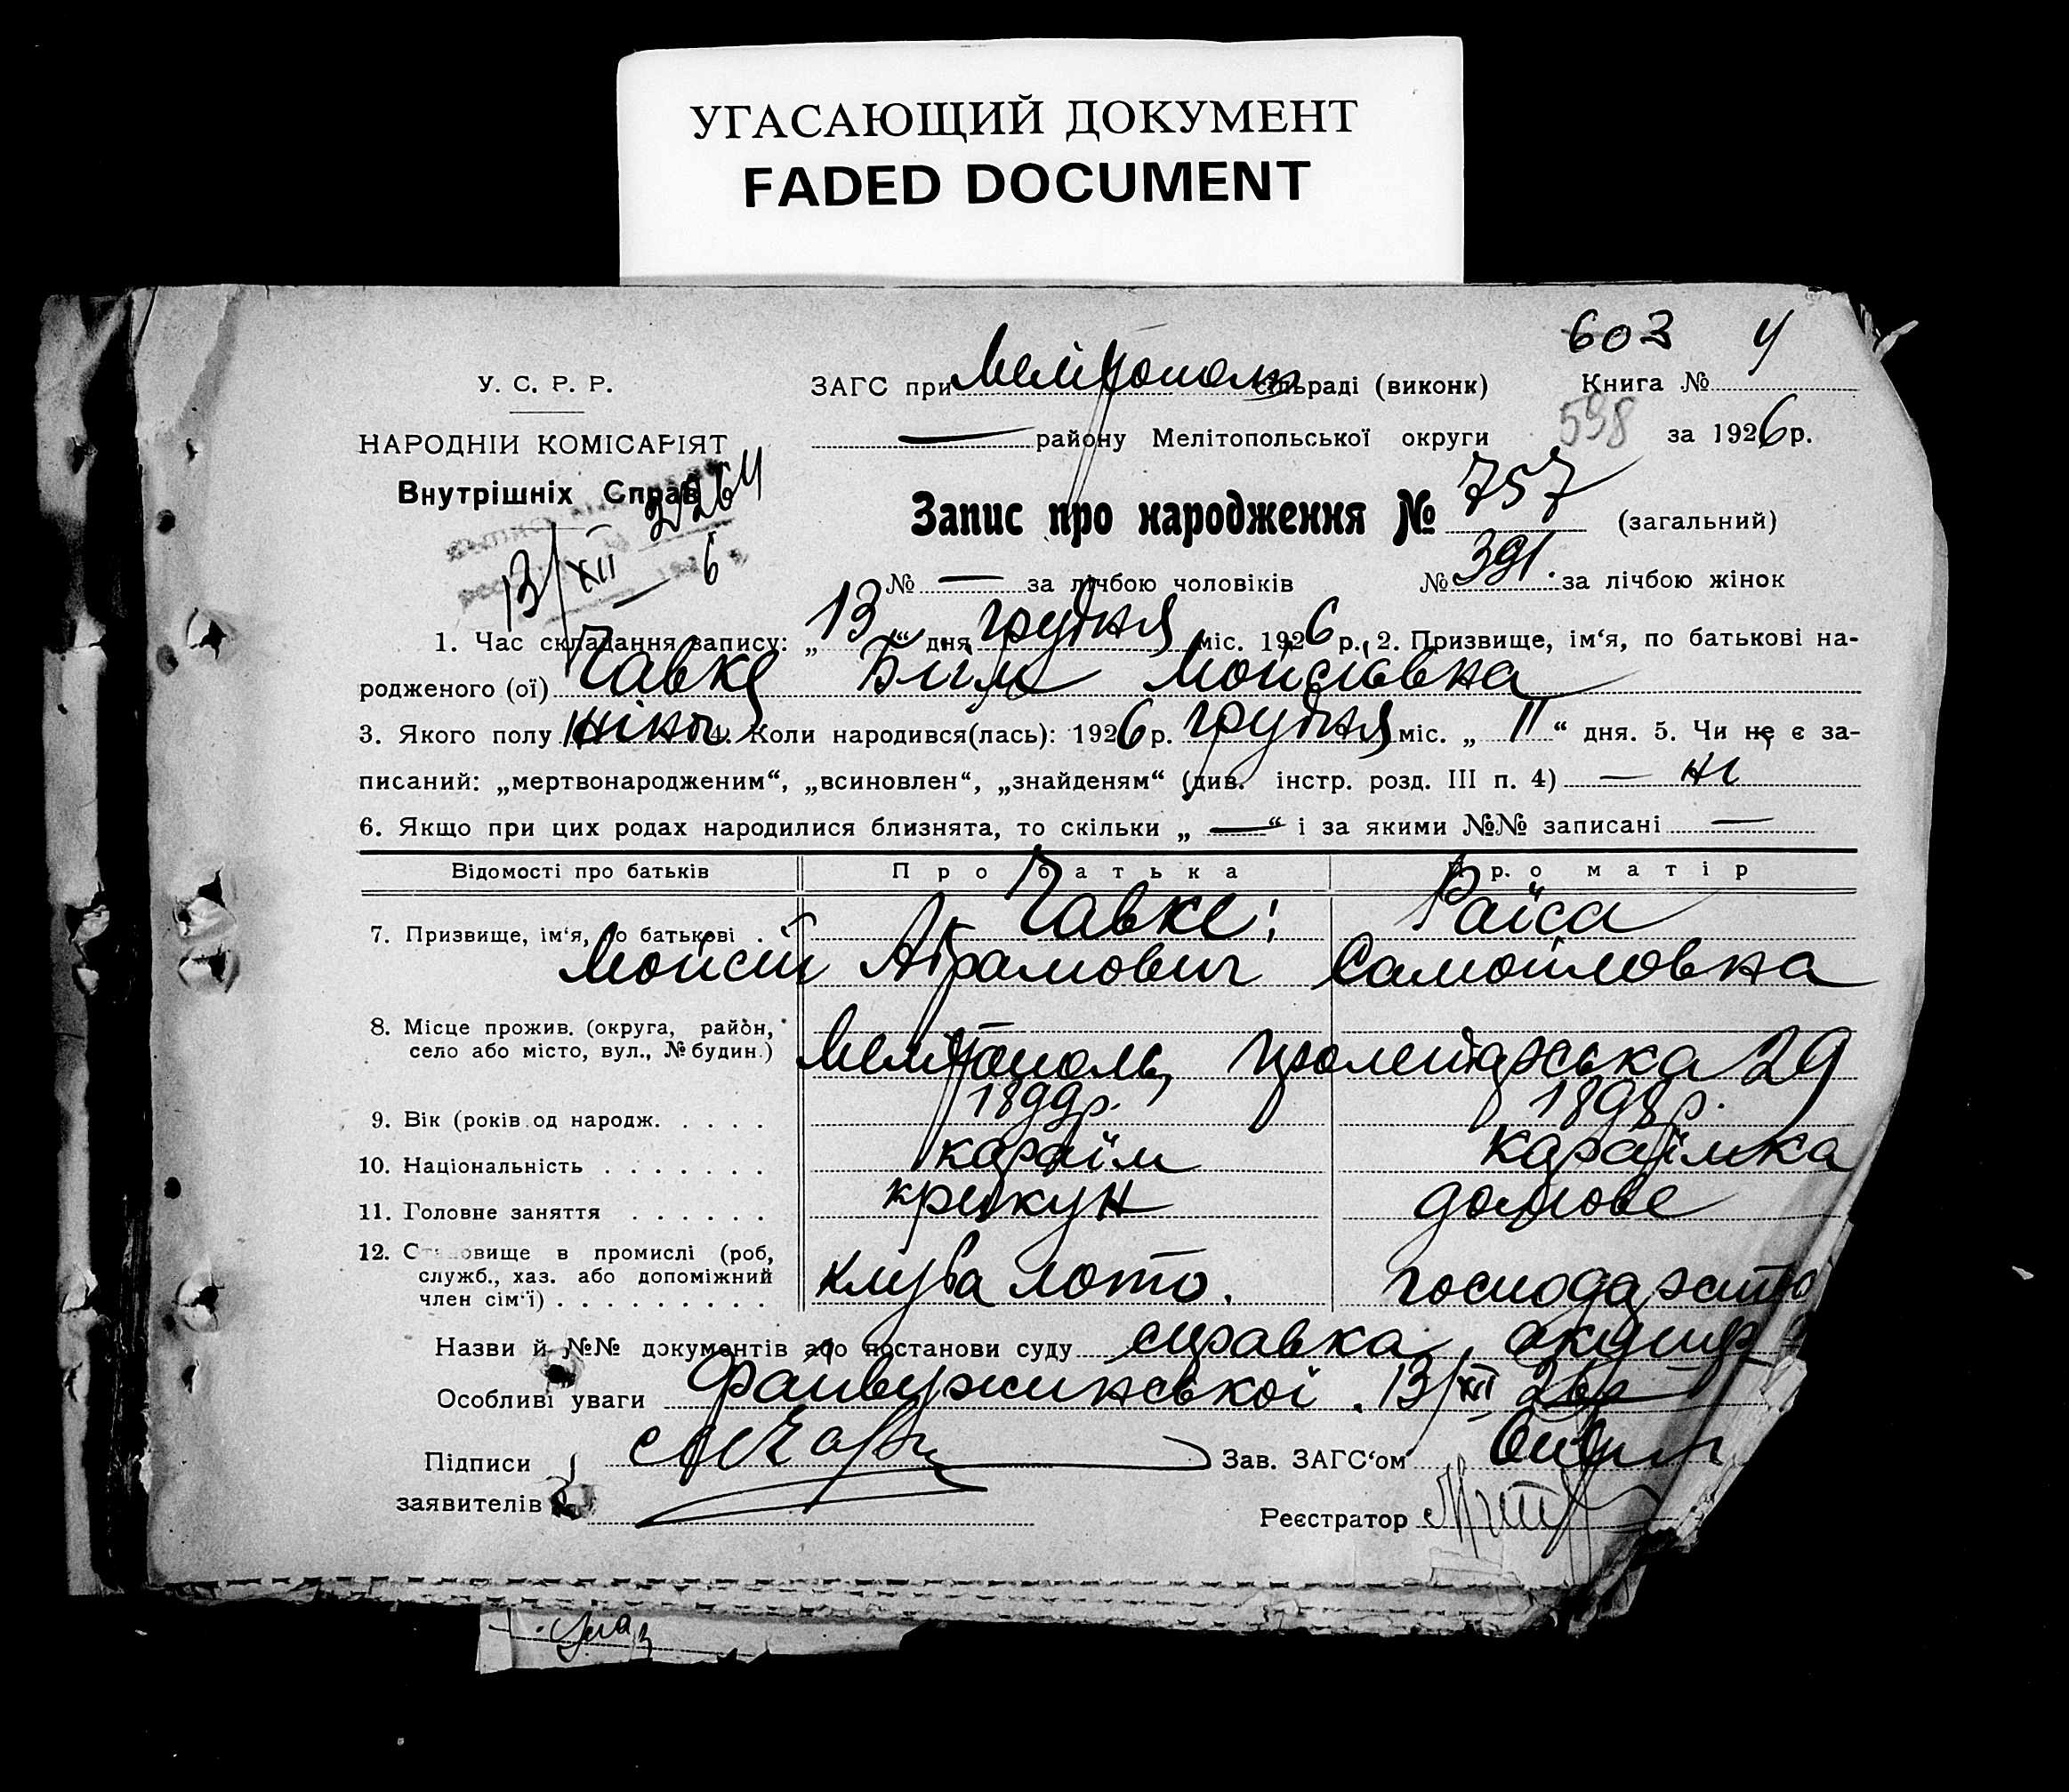 УГАСАЮЩИЙ ДОКУМЕНТ
FADED DOCUMENT
603 4
У. С. Р. Р.
ЗАГС при Мелітополь сільраді (виконк) Книга №
НАРОДНІЙ КОМІСАРІЯТ
— району Мелітопольської округи 598 за 1926 р.
Внутрішніх Справ
Запис про народження № 757 (загальний)
13/XII 6
№ — за лічбою чоловіків № 391. за лічбою жінок
1. Час складання запису: „13“ дня грудня міс. 1926 р. 2. Призвище, ім‘я, по батькові на-
родженого (ої) Чавке Мойсіївна
3. Якого полу жіноч 4. Коли народився(лась): 1926 р. грудня міс. „11“ дня. 5. Чи не є за-
писаний: „мертвонародженим“, „всиновлен“, „знайденям“ (див. інстр. розд. III п. 4) — ні
6. Якщо при цих родах народилися близнята, то скільки „—“ і за якими №№ записані —
Відомості про батьків Про батька Про матір
7. Призвище, ім‘я, по батькові . . Чавке: Раїса
Мойсій Абрамович Самойловна
8. Місце прожив. (округа, район,
село або місто, вул., № будин.) Мелітополь, Пролетарська 29
9. Вік (років од народж. . . . . 1899р. 1898р.
10. Національність . . . . . . . караїм караїмка
11. Головне заняття . . . . . . крикун домове
12. Становище в промислі (роб,
служб., хаз. або допоміжний
член сім‘ї) . . . . . . . . . клуба лото. господарство
Назви й №№ документів або постанови суду справка акушер
Особливі уваги 13/XII 26р
Підписи
Зав. ЗАГС‘ом
заявителів
Реєстратор